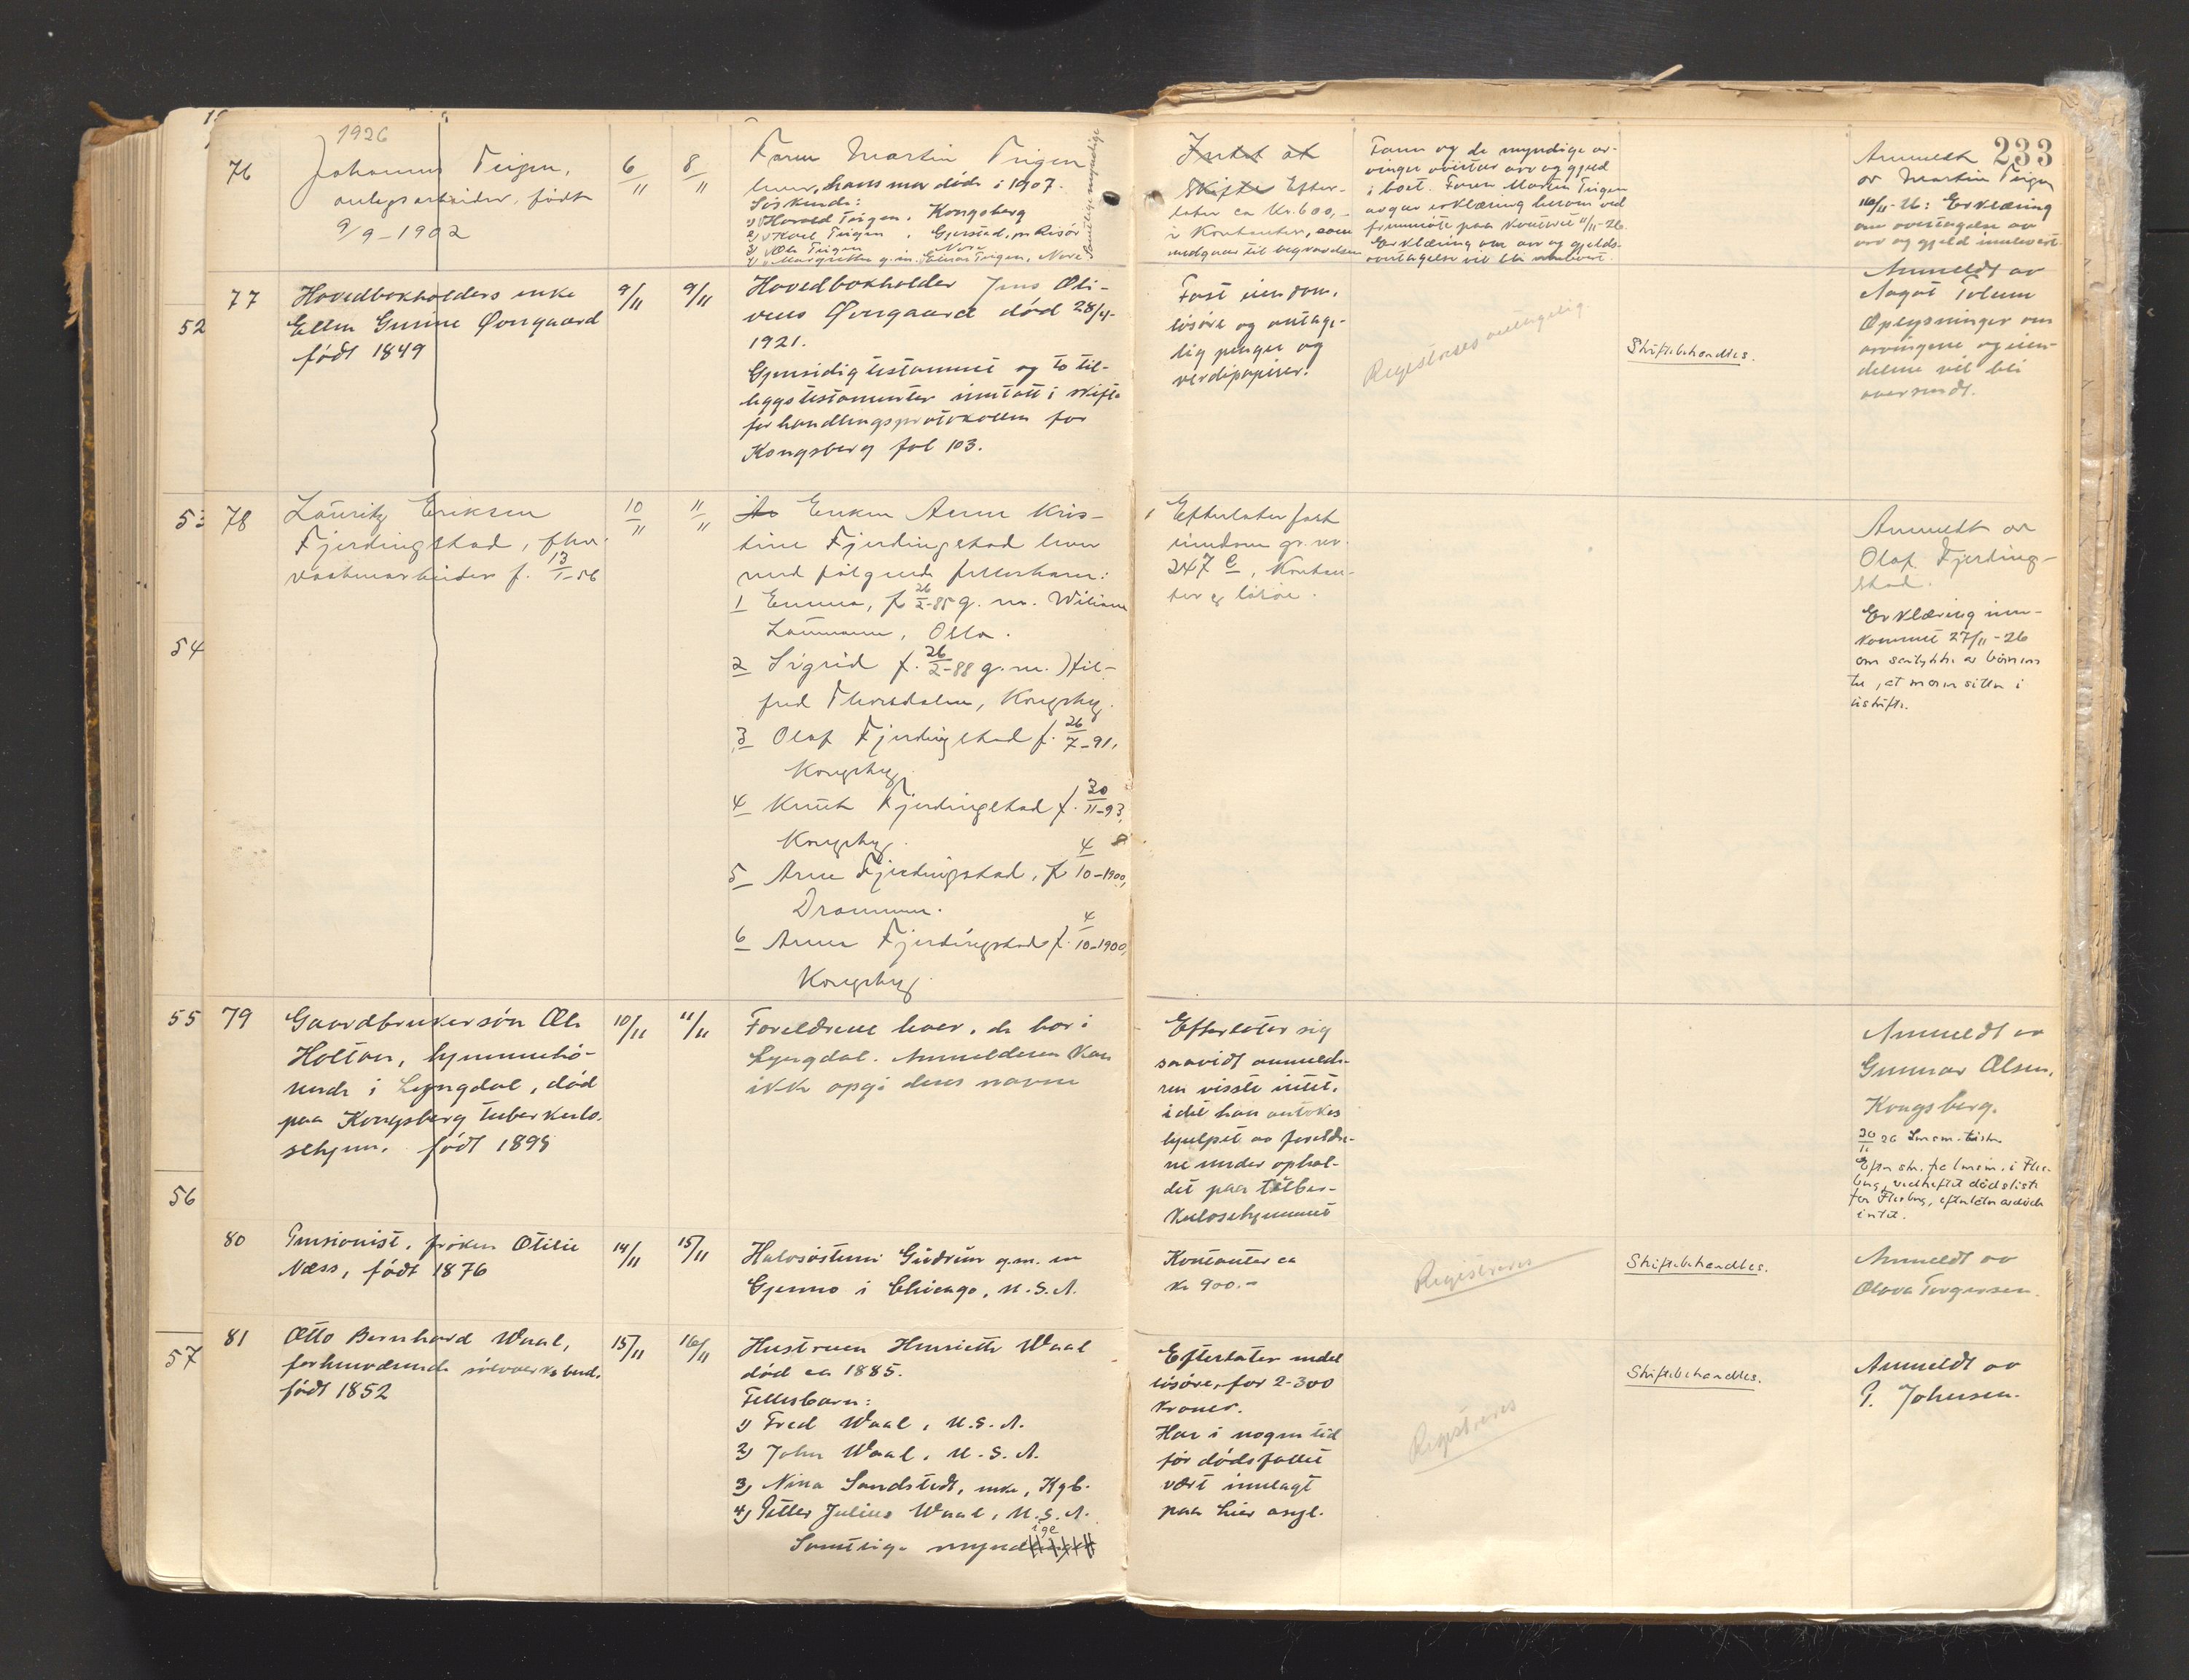 1926
233
76
Johannes Teigen,
anlegsarbeider, født
9/9-1902
6/11
8/11
Faren Martin Teigen
lever, hans mor døde i 1907.
Søskende:
1) Harald Teigen, Kongsberg
2) Karl Teigen, Gjerstad, pr Risør
3) Ole Teigen, Nore
4) Margrethe g.m. Einar Teigen, Nore
samtlige myndige
Intet at
skifte Efter-
later ca kr. 600,-
i kontanter, som
medgaar til begravelsen
Faren og de myndige ar-
vinger overtar arv og gjeld
i boet. Faren Martin Teigen
avgav erklæring herom ved
fremmøte paa kontoret 11/11-26
Erklæring om arv og gjelds-
overtagelse vil bli innlevert.
Anmeldt
av Martin Teigen
16/11-26: Erklæring
om overtagelse av
arv og gjeld innlevert.
52
77
Hovedbokholders enke
Ellen Gurine Ovrgaard
født 1849
9/11
9/11
Hovedbokholder Jens Oli-
veus Ovrgaard død 28/4-
1921.
Gjensidig testament og to til-
leggstestamenter inntatt i skifte
forhandlingsprotokollen for
Kongsberg fol 103.
Fast eiendom,
løsøre og antage-
lig penger og
verdipapirer.
Registreres antagelig
Skiftebehandles.
Anmeldt av
Aagot Tolum
Oplysninger om
arvingene og eien-
delene vil bli
oversendt.
53
78
Lauritz Eriksen
Fjerdingstad, fhv.
vaabenarbeider f. 13/1-56
10/11
11/11
Enken Anne Kris-
tine Fjerdingstad lever
med følgende fellesbarn:
1 Emma, f. 26/2-85 g.m. Wiliam
Laumann, Oslo.
2 Sigrid f. 26/2-88 g.m. Hil-
fred Thorsdalen, Kongsbg.
3 Olaf Fjerdingstad f. 26/7-91,
Kongsbg.
4 Knut Fjerdingstad f. 30/11-93,
Kongsbg.
5 Arne Fjerdingstad, f. 4/10-1900,
Drammen.
6 Anna Fjerdingstad f. 4/10-1900,
Kongsbg.
Efterlater fast
eiendom gr. nr.
247 e, kontan-
ter og løsøre.
Anmeldt av
Olaf Fjerding-
stad.
Erklæring inn-
kommet 27/11-26
om samtykke av barnene
til, at moren sitter i
uskifte.
54
55
79
Gaardbrukersøn Ole
Holtan, hjemmehø-
rende i Lyngdal, død
paa Kongsberg tuberkulo-
sehjem. født 1895
10/11
11/11
Foreldrene lever, de bor i
Lyngdal. Anmelderen kan
ikke opgi deres navne
Efterlater sig
saavidt anmelde-
ren visste intet,
idet han antokes
hjulpet av foreldre-
ne under ophol-
det paa tuber-
kulosehjemmet
Anmeldt av
Gunnar Olsen,
Kongsberg.
30/11 26 Lensm. tilskr.
Efter skr. fra lensm. i Fles-
berg, vedheftet dødsliste
for Flesberg, efterlater avdøde
intet.
56
80
Pensionist, frøken Otilie
Næss, født 1876
14/11
15/11
Halvsøsteren Gudrun g.m. en
Gjermo i Chicago, U.S.A.
Kontanter ca
kr 900.-
Registreres
Skiftebehandles.
Anmeldt av
Olava Torgersen.
57
81
Otto Bernhard Waal,
forhenværende sølvverksbud.
født 1852
15/11
16/11
Hustruen Henriette Waal
død ca 1885.
Fellesbarn:
1) Fred Waal, U.S.A.
2) John Waal, U.S.A.
3) Nina Sandstedt, enke, Kgb.
4) Petter Julius Waal, U.S.A.
Samtlige myndige
Efterlater endel
løsøre, for 2-300
kroner.
Har i nogen tid
før dødsfallet
vært innlagt
paa hier asyl.
Registreres
Skiftebehandles.
Anmeldt av
P. Johnsen.